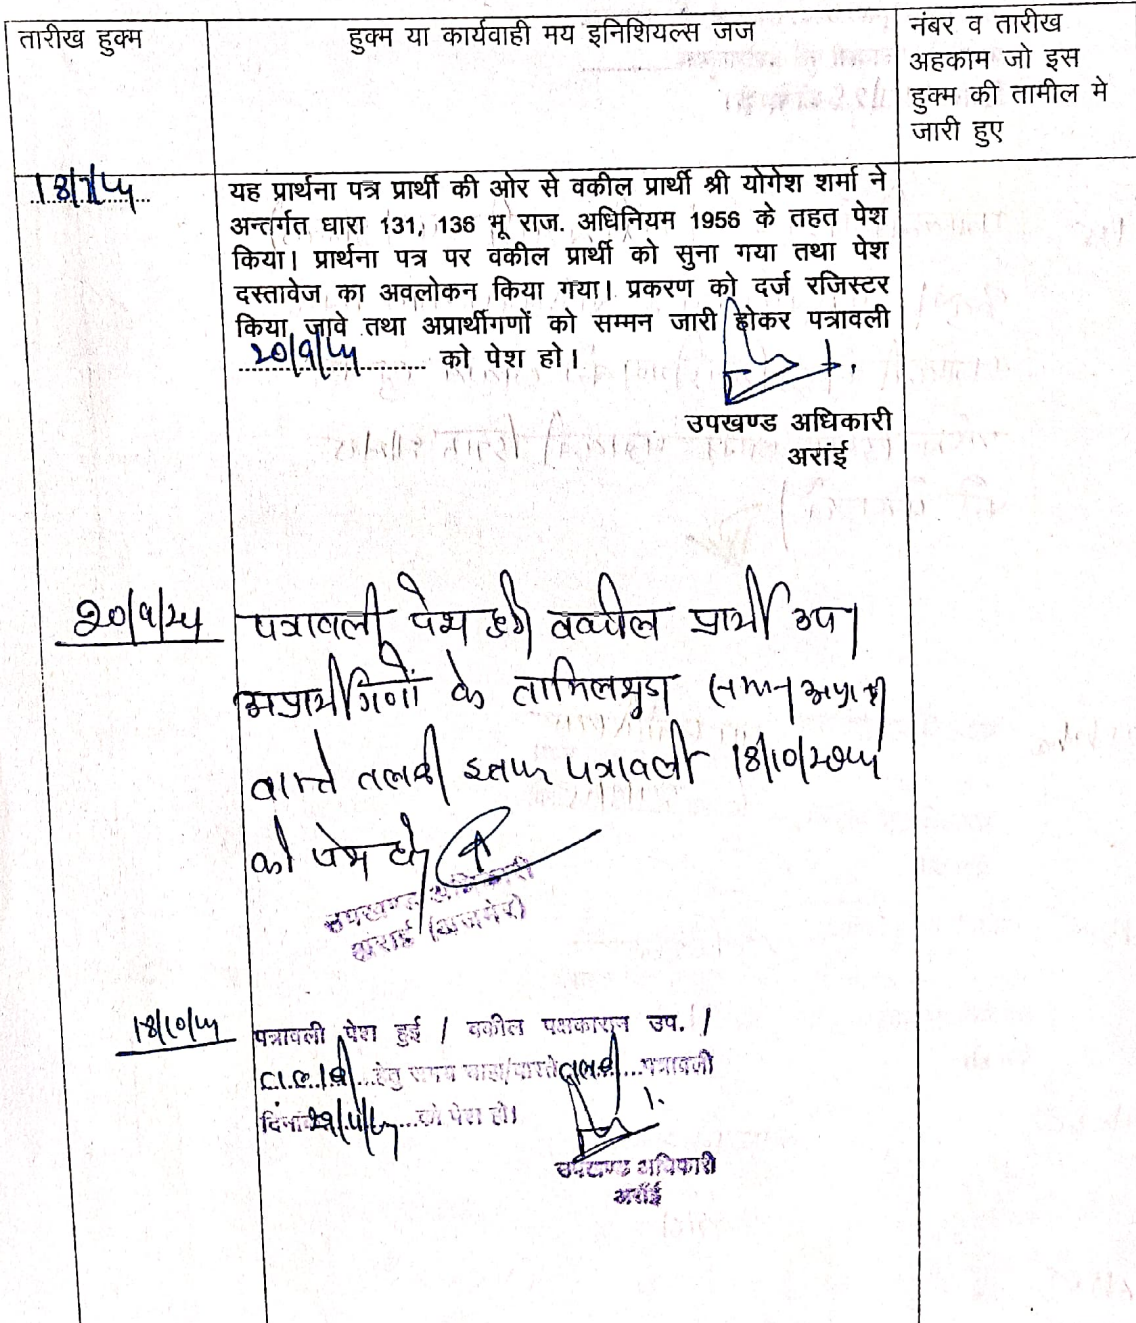 तारीख हुक्म
हुक्म या कार्यवाही मय इनिशियल्स जज
नंबर व तारीख
अहकाम जो इस
हुक्म की तामील मे
जारी हुए
यह प्रार्थना पत्र प्रार्थी की ओर से वकील प्रार्थी श्री योगेश शर्मा ने
अन्तर्गत धारा 131, 136 भू राज. अधिनियम 1956 के तहत पेश
किया। प्रार्थना पत्र पर वकील प्रार्थी को सुना गया तथा पेश
दस्तावेज का अवलोकन किया गया। प्रकरण को दर्ज रजिस्टर
किया जावे तथा अप्रार्थीगणों को सम्मन जारी होकर पत्रावली
को पेश हो।
उपखण्ड अधिकारी
अरांई
पत्रावली पेश हुई वकील प्रार्थी उप।
अप्रार्थीगणों के
वास्ते तलबी पत्रावली 18/10/
को पेश हो
उपखण्ड अधिकारी
अरांई (अजमेर)
पत्रावली पेश हुई / वकील पक्षकारान उप. /
हेतु समय तलबी पत्रावली
को पेश हो।
उपखण्ड अधिकारी
अरांई